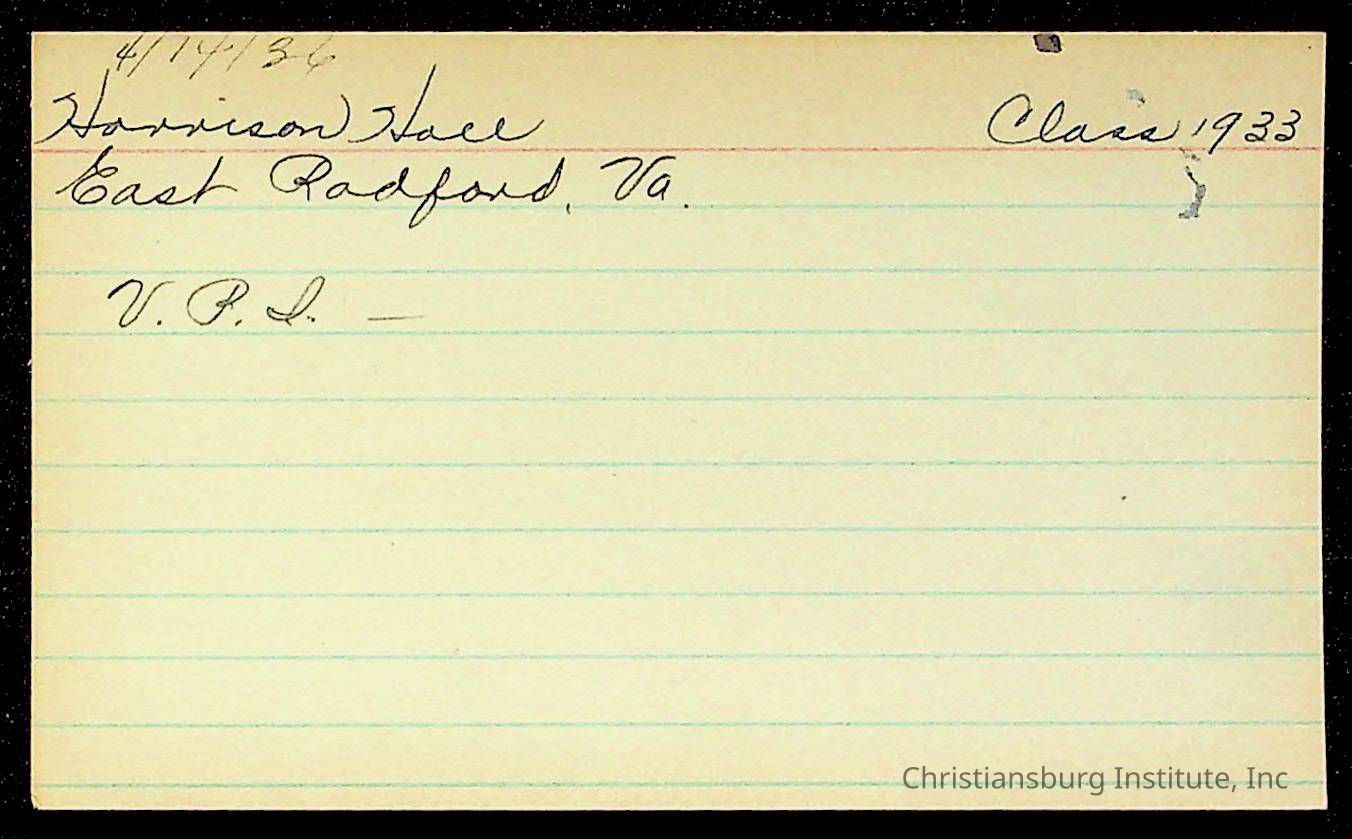 4/14/36
Harrison Hall Class 1933
East Radford, Va.
V. P. I. —
Christiansburg Institute, Inc